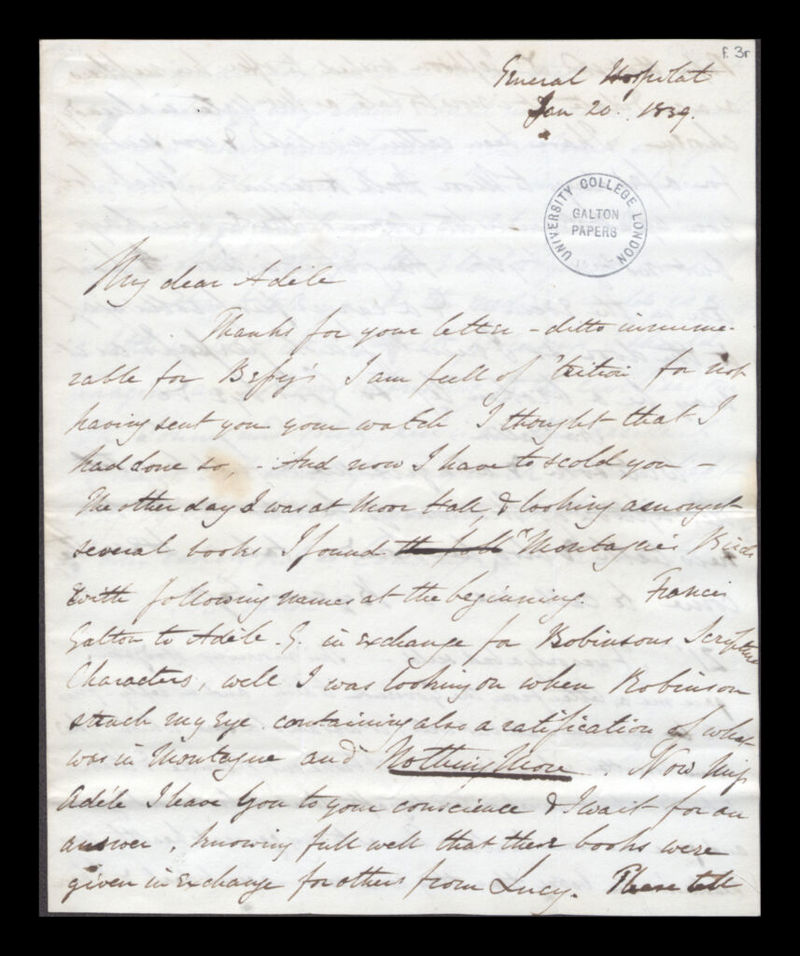 f. 3r
General Hospital
Jan 20. 1839.
UNIVERSITY COLLEGE LONDON
GALTON
PAPERS
My dear Adèle
Thanks for your letter - ditto innume-
rable for Bessy's I am full of 'trition for not
having sent you your watch I thought that I
had done so, - And now I have to scold you -
The other day I was at Moor Hall, & looking amongst
several books I found the foll Montague's Birds
with following names at the beginning. Francis
Galton to Adèle. G. in exchange for Robinsons Scripture
Characters, well I was looking on when Robinson
struck my eye. containing also a ratification of what
was in Montague and Nothing More. Now Miss
Adèle I leave you to your conscience & I wait for an
answer, knowing full well that these books were
given in exchange for others from Lucy. Please tell